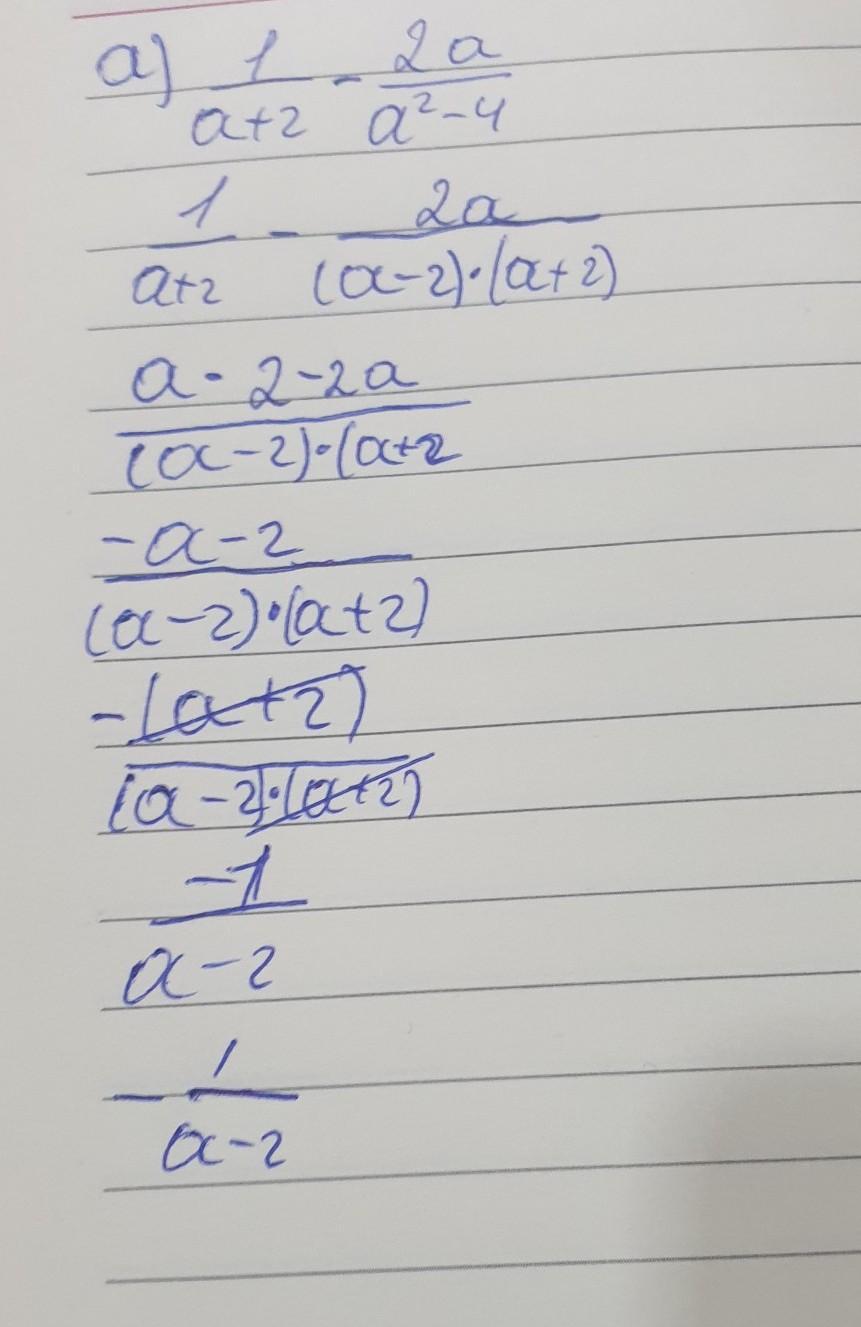 a) 1/(a+2) - 2a/(a²-4)
1/(a+2) - 2a/((a-2)·(a+2))
(a-2-2a)/((a-2)·(a+2
(-a-2)/((a-2)·(a+2))
-(a+2)/((a-2)·(a+2))
-1/(a-2)
- 1/(a-2)